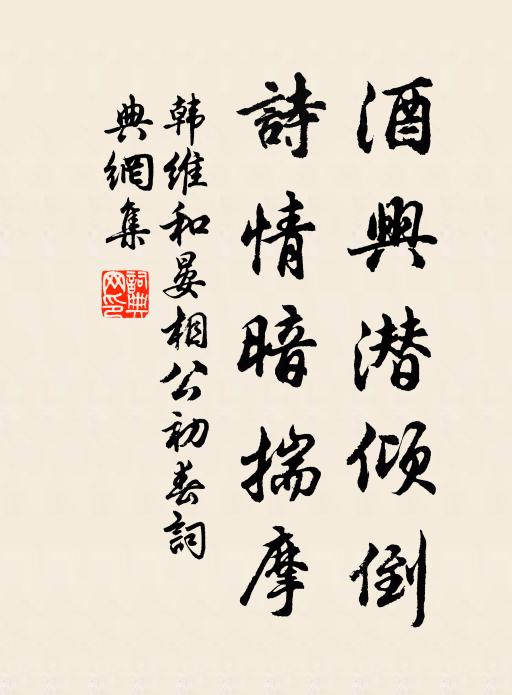 酒興潜倾倒
詩情暗揣摩
韩維和晏相公初春詞
典網集
詞典网印